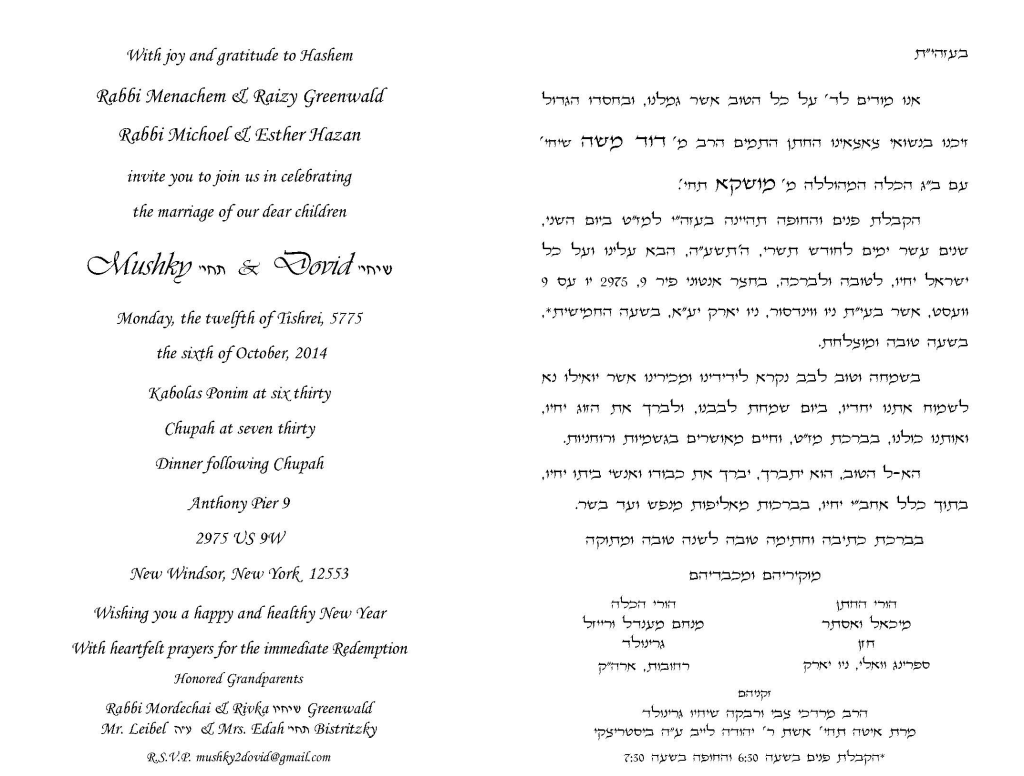 With joy and gratitude to Hashem
Rabbi Menachem & Raizy Greenwald
Rabbi Michoel & Esther Hazan
invite you to join us in celebrating
the marriage of our dear children
Mushky תחיי & Dovid שיחיי
Monday, the twelfth of Tishrei, 5775
the sixth of October, 2014
Kabolas Ponim at six thirty
Chupah at seven thirty
Dinner following Chupah
Anthony Pier 9
2975 US 9W
New Windsor, New York 12553
Wishing you a happy and healthy New Year
With heartfelt prayers for the immediate Redemption
Honored Grandparents
Rabbi Mordechai & Rivka שיחיו Greenwald
Mr. Leibel ע״ה & Mrs. Edah תחיי Bistritzky
R.S.V.P. mushky2dovid@gmail.com
בעזהי״ת
אנו מודים לד׳ על כל הטוב אשר גמלנו, ובחסדו הגדול
זיכנו בנשואי צאצאינו החתן התמים הרב מ׳ דוד משה שיחי׳
עם ב״ג הכלה המהוללה מ׳ מושקא תחי׳.
הקבלת פנים והחופה תהיינה בעזה״י למז״ט ביום השני,
שנים עשר ימים לחודש תשרי, ה׳תשע״ה, הבא עלינו ועל כל
ישראל יחיו, לטובה ולברכה, בחצר אנטוני פיר 9, 2975 יו עס 9
וועסט, אשר בעי״ת ניו ווינדסור, ניו יארק יע״א, בשעה החמישית*,
בשעה טובה ומוצלחת.
בשמחה וטוב לבב נקרא לידידינו ומכירינו אשר יואילו נא
לשמוח אתנו יחדיו, ביום שמחת לבבנו, ולברך את הזוג יחיו,
ואותנו כולנו, בברכת מז״ט, וחיים מאושרים בגשמיות ורוחניות.
הא-ל הטוב, הוא יתברך, יברך את כבודו ואנשי ביתו יחיו,
בתוך כלל אחב״י יחיו, בברכות מאליפות מנפש ועד בשר.
בברכת כתיבה וחתימה טובה לשנה טובה ומתוקה
מוקיריהם ומכבדיהם
הורי החתן
מיכאל ואסתר
חזן
ספרינג וואלי, ניו יארק
הורי הכלה
מנחם מענדל ורייזל
גרינולד
רחובות, ארה״ק
זקניהם
הרב מרדכי צבי ורבקה שיחיו גרינולד
מרת איטה תחי׳ אשת ר׳ יהודה לייב ע״ה ביסטריצקי
*הקבלת פנים בשעה 6:30 והחופה בשעה 7:30